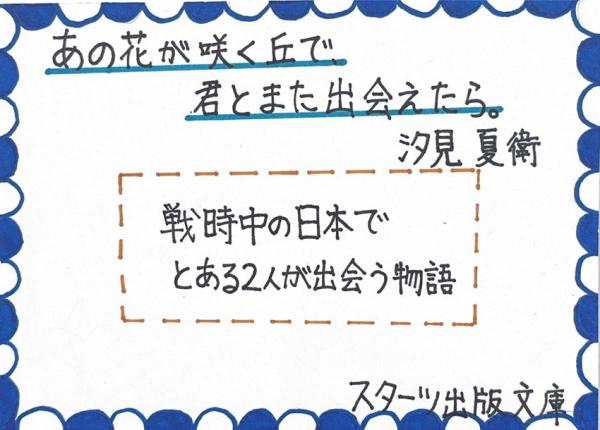 あの花が咲く丘で、
君とまた出会えたら。
汐見 夏衛
戦時中の日本で
とある2人が出会う物語
スターツ出版文庫